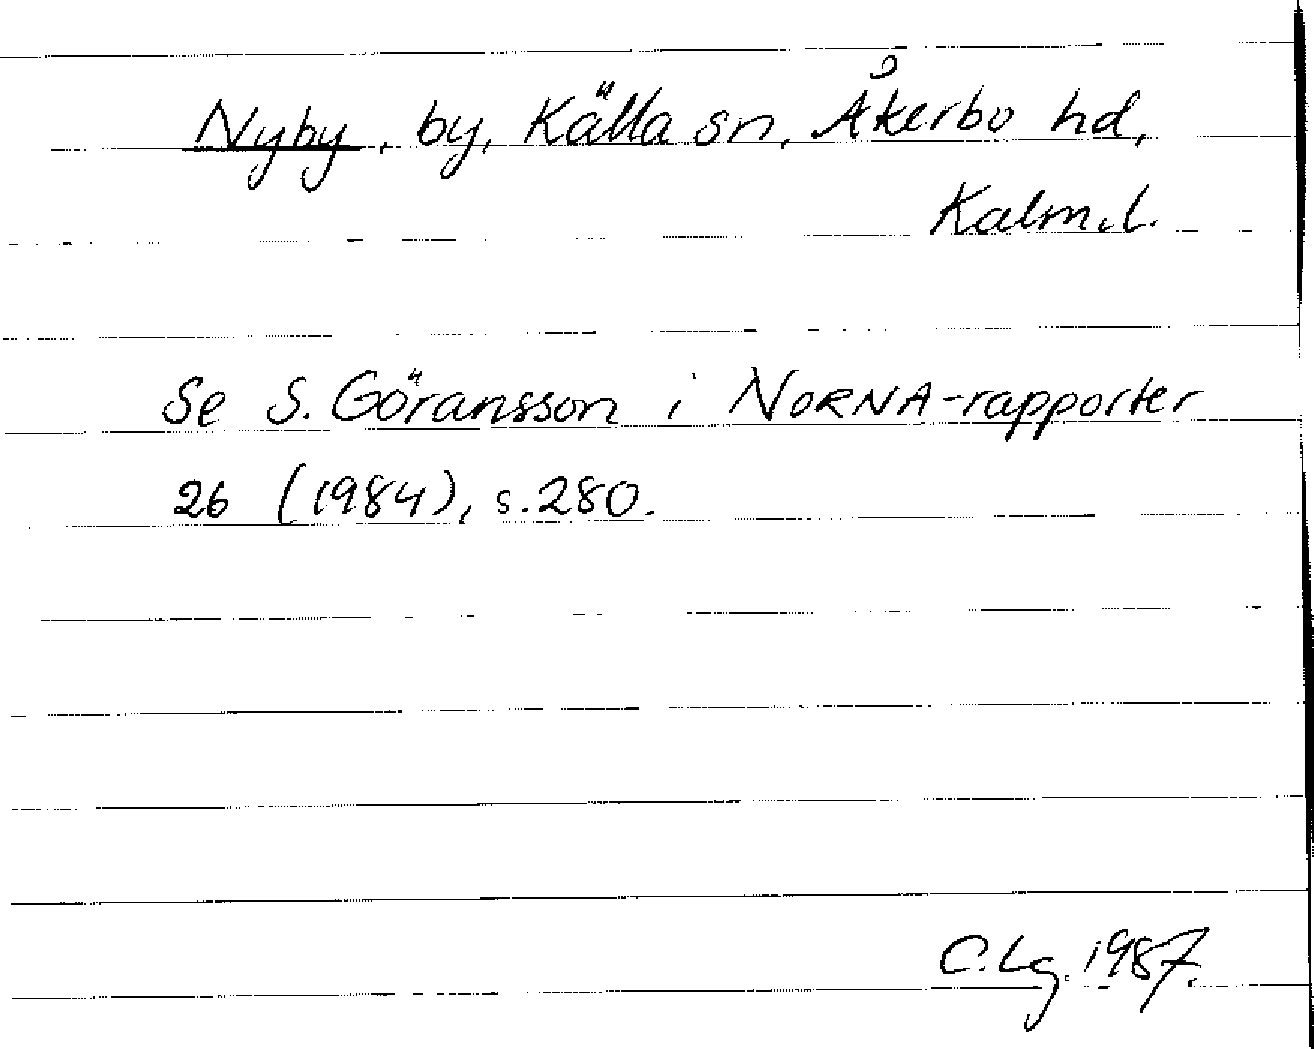 Nyby, by, Källa sn, Åkerbo hd,
Kalm.l.
Se S. Göransson i NORNA-rapporter
26 (1984), s. 280.
C.Lg. 1987.